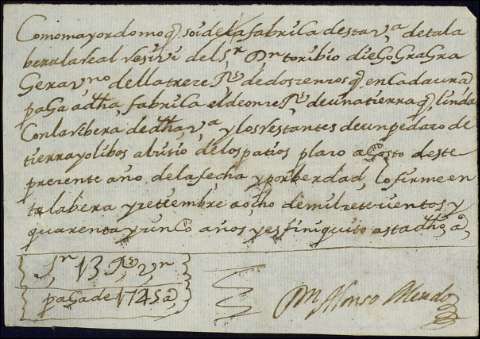 Como mayordomo q. soi de la fabrica desta va. de tala
bera la Real Resivi del Sr. Dn. toribio diego Gragra
Gera vno. della trese Rs. de dos zensos q. en cada un a
paga a dha, fabrica el d onse Rs. de una tierra q. linda
Con la Ribera de dha va. y los restantes de un pedazo de
tierra y olibos al sitio de los patios plazo agosto deste
presente año de la fecha y por berdad, lo firme en
talabera y setiembre a ocho de mil setecientos y
quarenta y sinco años y es finiquito asta dho a,
Sn 13 Rs 2 n
paga de 1745 a
Dn. Alonso Mendo